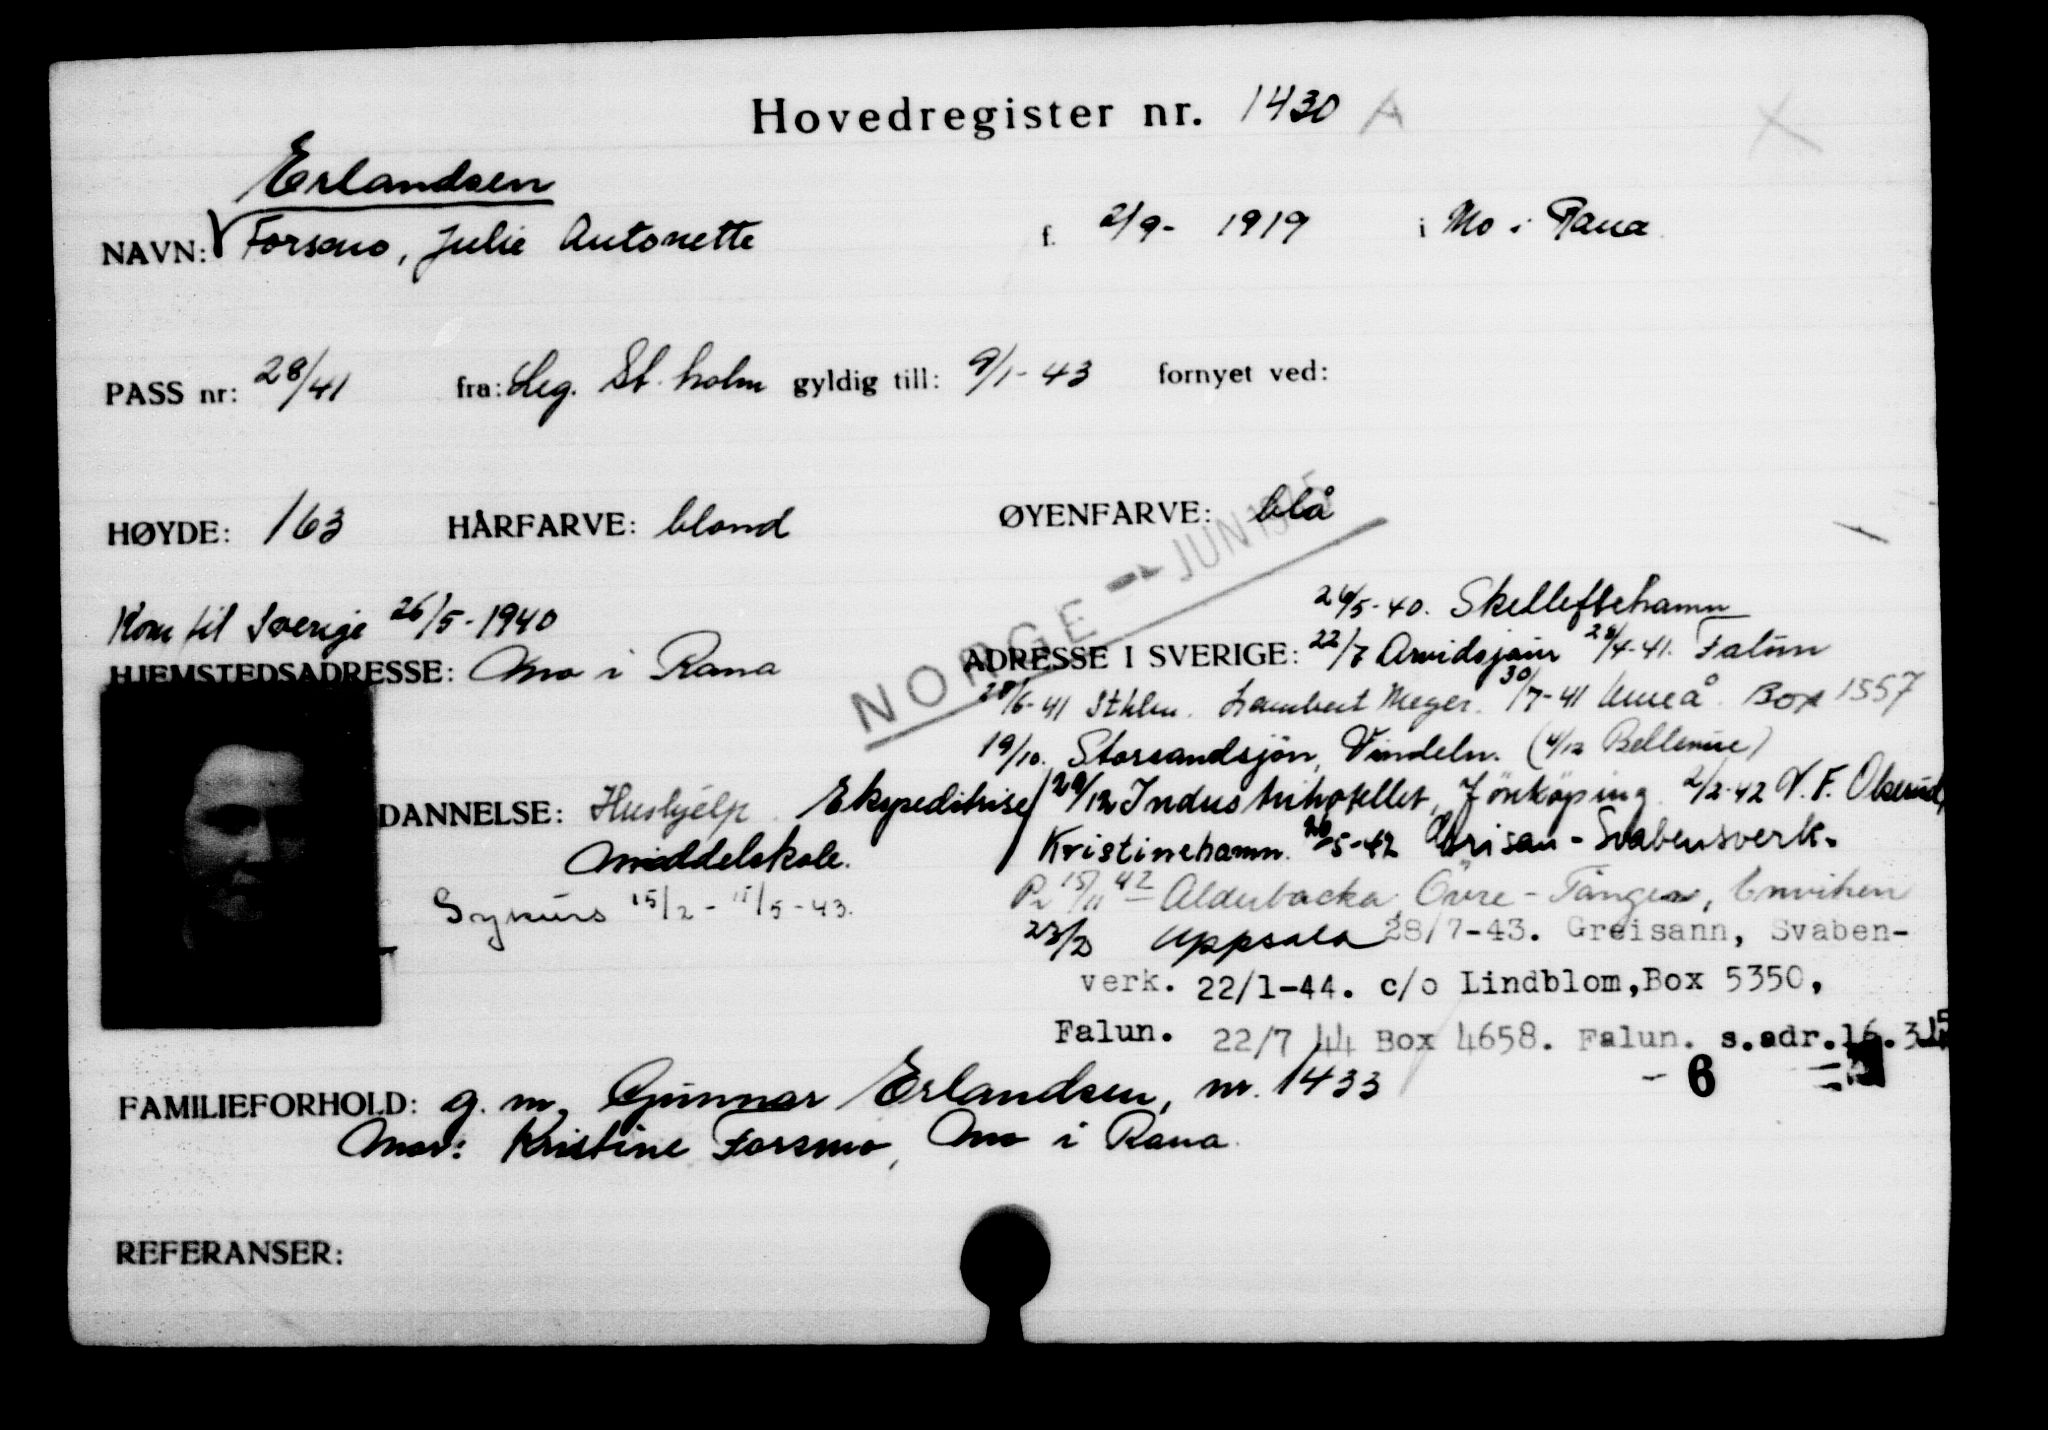 Hovedregister nr. 1430 A
Erlandsen
NAVN: Forsmo, Julie Antonette f. 2/9- 1919 i Mo i Rana
PASS nr: 28/41 fra: Leg. St.holm gyldig till: 9/1-43 fornyet ved:
HØYDE: 163 HÅRFARVE: blond ØYENFARVE: blå
NORGE JUN 1945
Kom til Sverige 26/5-1940
HJEMSTEDSADRESSE: Mo i Rana
ADRESSE I SVERIGE: 26/5-40. Skelleftehamn
22/7 Arvidsjaur 28/4-41. Falun
28/6-41 Sthlm. Lambert Meyer. 30/7-41 Umeå. Box 1557
19/10. Storsandsjön, Vindeln. (4/12 Bellevue)
29/12 Industrihotellet, Jönköping. 2/2-42 V. F. Olserud,
Kristinehamn. 20/5-42 Grisan-Svabensverk.
15/11 42 Alderbacka Övre-Tängen, Enviken
23/2 Uppsala 28/7-43. Greisann, Svaben-
verk. 22/1-44. c/o Lindblom, Box 5350,
Falun. 22/7 44 Box 4658. Falun. s.adr.16.3
- 6
DANNELSE: Hushjelp. Ekspeditrise
Middelskole.
Sykurs 15/2 - 15/5-43.
FAMILIEFORHOLD: g. m. Gunnar Erlandsen, nr. 1433
Mor: Kristine Forsmo, Mo i Rana.
REFERANSER: